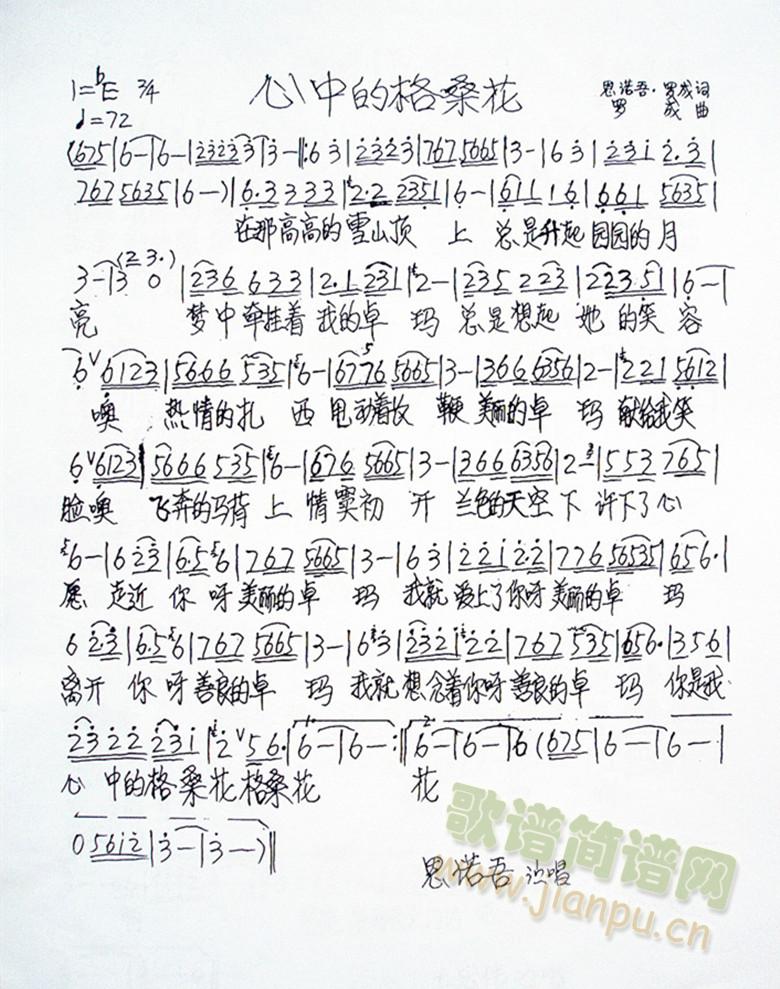 1=bE 3/4 心中的格桑花 思诺吾·罗成词
♩=72 罗 成 曲
(675|6-|6-|232323|3-‖:63|2323|7675665|3-|63|231 2.3|
767 5635|6-)|6.3333|2.2 2351|6-|611 16|661 5635|
在那高高的雪山顶 上 总是升起园园的月
3-|3 0(23.)|236 633|2.1 231|2-|235 223|2235 1|6-|
亮 梦中牵挂着 我的卓 玛 总是想起 她的笑 容
6∨6123|5666 535|6-|6776 5665|3-|366 6356|2-|221 5612|
噢 热情的扎 西 甩动着牧 鞭 美丽的卓 玛 献给我笑
6∨6123|5666 535|6-|676 5665|3-|366 6356|2-|553 765|
脸噢 飞奔的马背 上 情窦初 开 兰色的天空 下 许下了心
6-|6 23|6.5 6|767 5665|3-|63|221 2.2|776 56535|656.|
愿 走近 你 呀美丽的卓 玛 我就 爱上了你呀美丽的卓 玛
6 23|6.5 6|767 5665|3-|63|2321 22|767 535|656.|356|
离开 你 呀善良的卓 玛 我就 想念着你呀善良的卓 玛 你是我
2322 231|2∨56.|1.6-|6-:‖2.6-|6-|6(675|6-|6-|
心 中的格桑花格桑花 花
05612|3-|3-)‖
思诺吾 演唱
歌谱简谱网
www.jianpu.cn